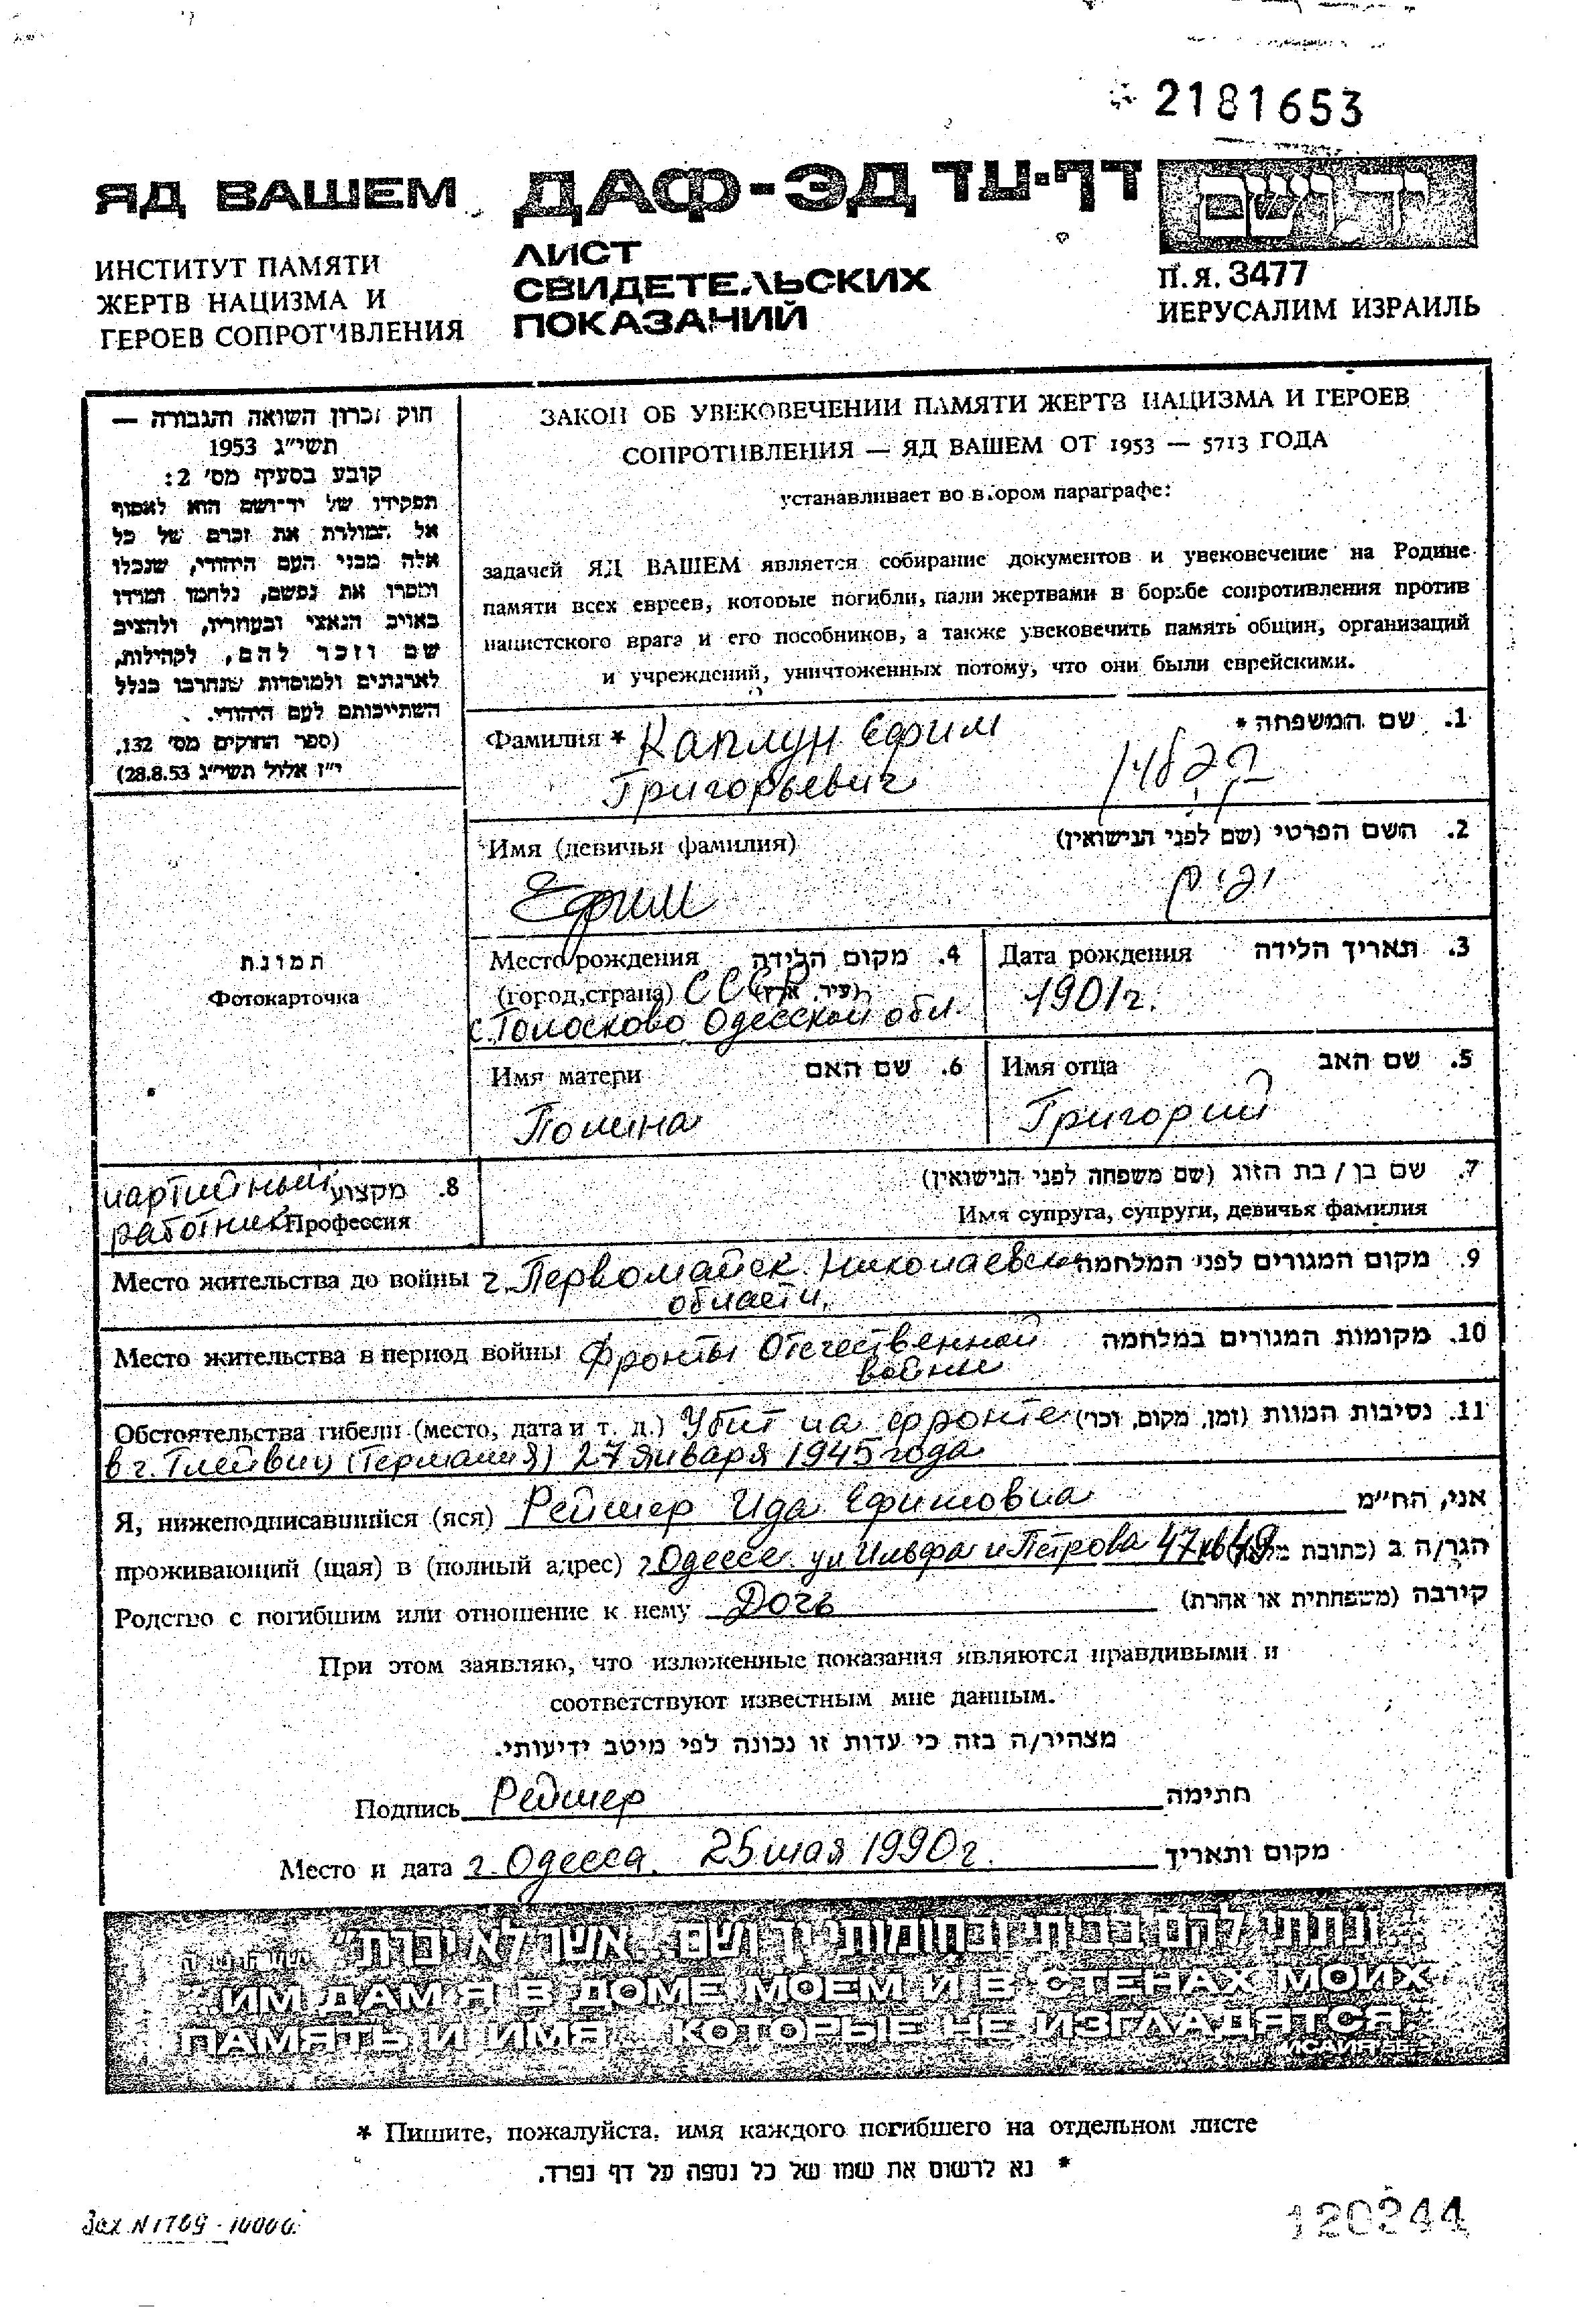 2181653
ЯД ВАШЕМ
ИНСТИТУТ ПАМЯТИ
ЖЕРТВ НАЦИЗМА И
ГЕРОЕВ СОПРОТИВЛЕНИЯ
ДАФ-ЭД דף-עד
ЛИСТ
СВИДЕТЕЛЬСКИХ
ПОКАЗАНИЙ
יד ושם
П.Я. 3477
ИЕРУСАЛИМ ИЗРАИЛЬ
חוק זכרון השואה והגבורה —
תשי"ג 1953
קובע בסעיף מס' 2:
תפקידו של יד-ושם הוא לאסוף
אל המולדת את זכרם של כל
אלה מבני העם היהודי, שנפלו
ומסרו את נפשם, נלחמו ומרדו
באויב הנאצי ובעוזריו, ולהציב
שם וזכר להם, לקהילות,
לארגונים ולמוסדות שנחרבו בגלל
השתייכותם לעם היהודי.
(ספר החוקים מס' 132,
י"ז אלול תשי"ג 28.8.53)
ЗАКОН ОБ УВЕКОВЕЧЕНИИ ПАМЯТИ ЖЕРТВ НАЦИЗМА И ГЕРОЕВ
СОПРОТИВЛЕНИЯ — ЯД ВАШЕМ ОТ 1953 — 5713 ГОДА
устанавливает во втором параграфе:
задачей ЯД ВАШЕМ является собирание документов и увековечение на Родине
памяти всех евреев, которые погибли, пали жертвами в борьбе сопротивления против
нацистского врага и его пособников, а также увековечить память общин, организаций
и учреждений, уничтоженных потому, что они были еврейскими.
Фамилия * Каплун Ефим 1. שם המשפחה *
Григорьевич קפלון
Имя (девичья фамилия) 2. השם הפרטי (שם לפני הנישואין)
Ефим יפים
תמונת
Фотокарточка
Место рождения 4. מקום הלידה
(город,страна) СССР (עיר, ארץ)
с. Голосково Одесской обл.
Дата рождения 3. תאריך הלידה
1901г.
Имя матери 6. שם האם
Полина
Имя отца 5. שם האב
Григорий
партийный 8. מקצוע
работник Профессия
7. שם בן / בת הזוג (שם משפחה לפני הנישואין)
Имя супруга, супруги, девичья фамилия
Место жительства до войны г. Первомайск Николаевск. 9. מקום המגורים לפני המלחמה
области.
Место жительства в период войны Фронты Отечественной 10. מקומות המגורים במלחמה
войны
Обстоятельства гибели (место, дата и т. д.) Убит на фронте 11. נסיבות המוות (זמן, מקום, וכו')
в г. Глейвиц (Германия) 27 января 1945 года
Я, нижеподписавшийся (яся) Реймер Ида Ефимовна אני, הח"מ
проживающий (щая) в (полный адрес) г. Одесса ул Ильфа и Петрова 47 кв 49 הגר/ה ב (כתובת מלאה)
Родство с погибшим или отношение к нему Дочь קירבה (משפחתית או אחרת)
При этом заявляю, что изложенные показания являются правдивыми и
соответствуют известным мне данным.
מצהיר/ה בזה כי עדות זו נכונה לפי מיטב ידיעותי.
Подпись Реймер חתימה
Место и дата г. Одесса. 25 мая 1990г. מקום ותאריך
"...ונתתי להם בביתי ובחומותי יד ושם... אשר לא יכרת"
"...ИМ ДАМ Я В ДОМЕ МОЕМ И В СТЕНАХ МОИХ
ПАМЯТЬ И ИМЯ... КОТОРЫЕ НЕ ИЗГЛАДЯТСЯ."
ИСАЙЯ 56:5
* Пишите, пожалуйста, имя каждого погибшего на отдельном листе
* נא לרשום את שמו של כל נספה על דף נפרד.
Зак N 1769 - 10000
120244